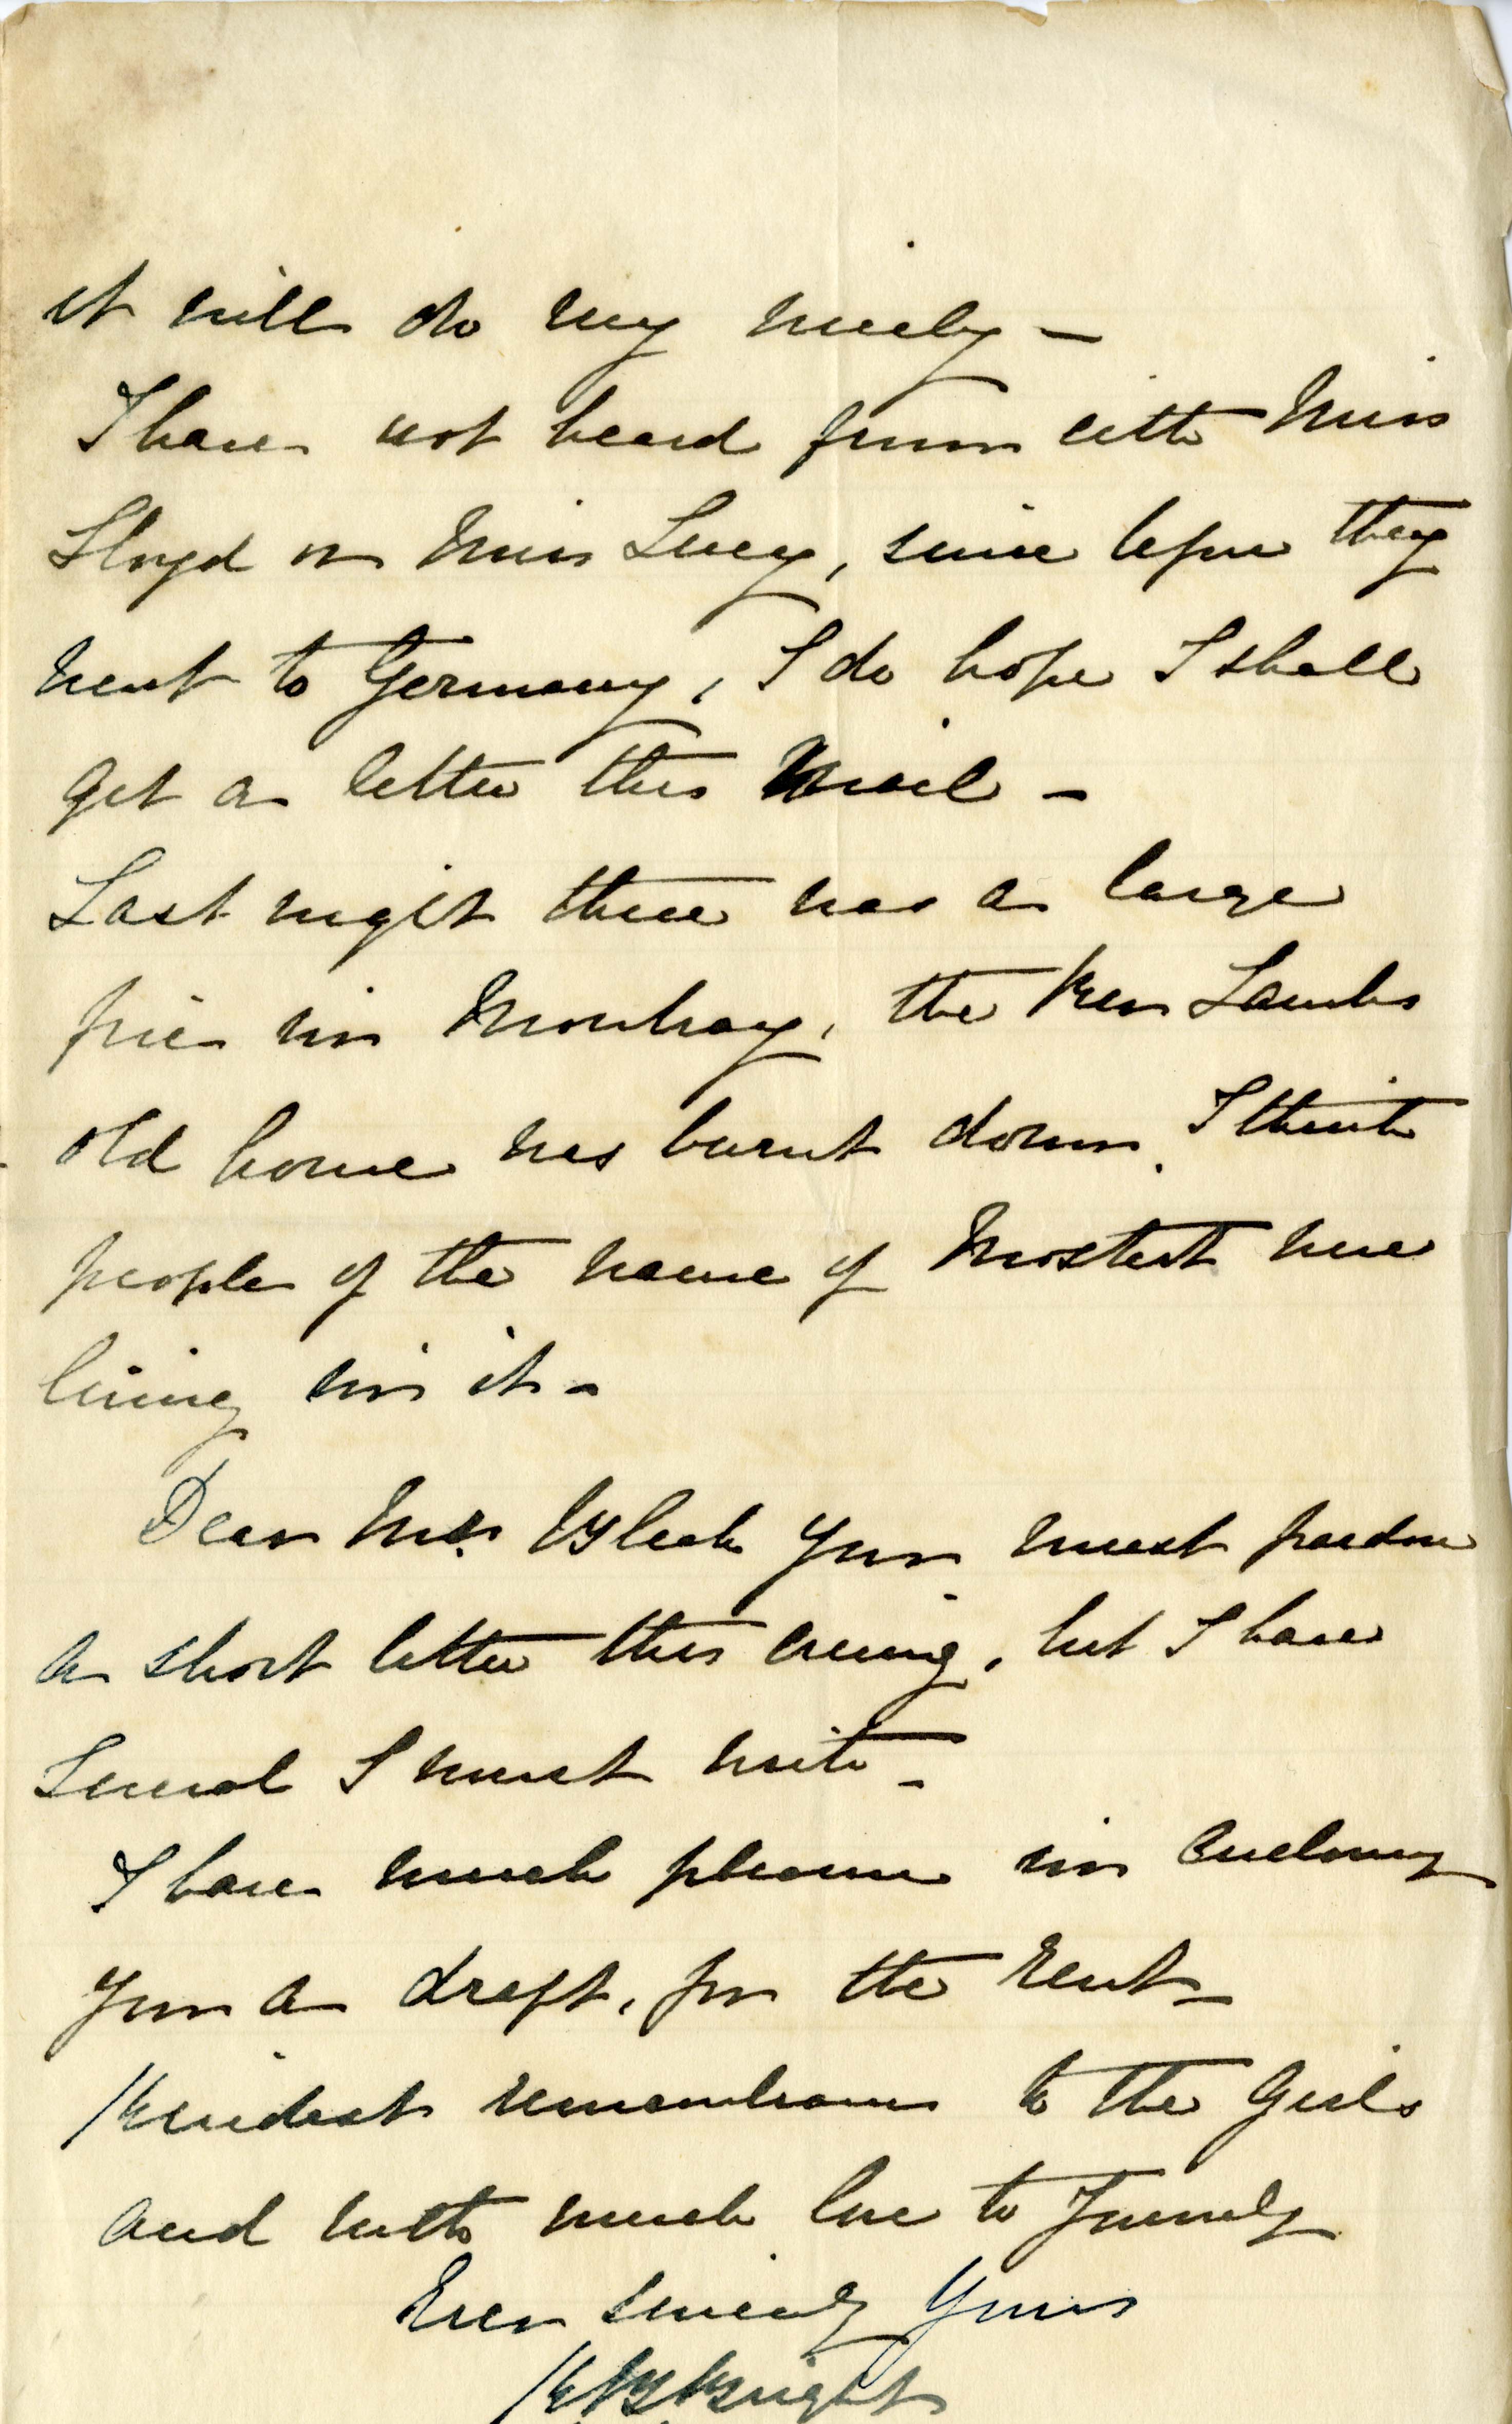 it will do very nicely —
I have not heard from either Miss
Lloyd or Miss Lucy, since before they
went to Germany, I do hope I shall
get a letter this Mail —
Last night there was a large
fire in Mowbray, the Lambs
old house was burnt down. I think
people of the name of Mostert were
living in it —
Dear Mrs. Bleek you must pardon
a short letter this evening, but I have
Several I must write —
I have much pleasure in enclosing
you a draft, for the rent —
Kindest remembrances to the Girls
and with much love to yourself
Ever sincerely Yours
Bright